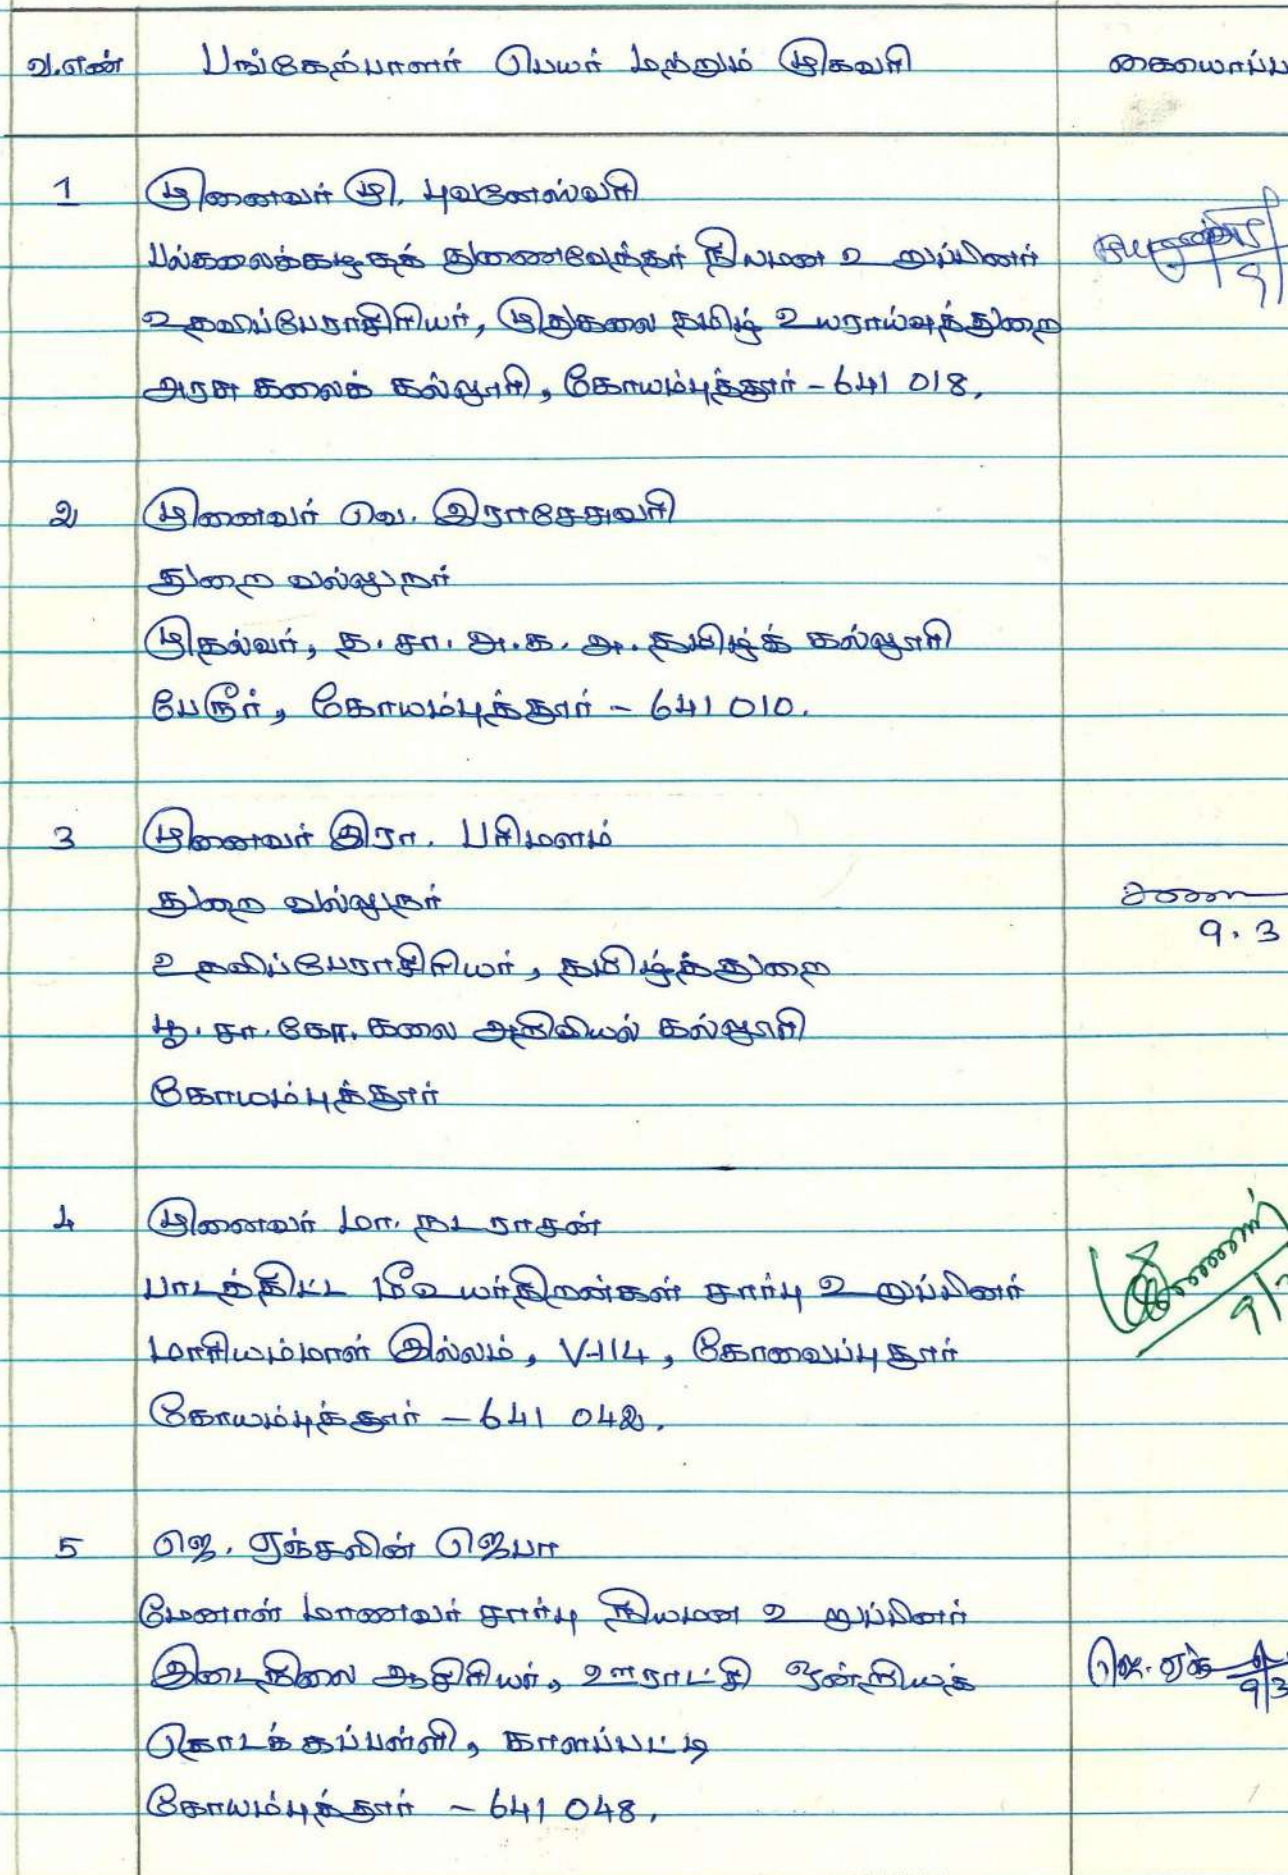 வ.எண் பங்கேற்பாளர் பெயர் மற்றும் முகவரி கையொப்ப
1 முனைவர் மு. புவனேஸ்வரி
பல்கலைக்கழகத் துணைவேந்தர் நியமன உறுப்பினர்
உதவிப்பேராசிரியர், முதுகலை தமிழ் உயராய்வுத்துறை
அரசு கலைக் கல்லூரி, கோயம்புத்தூர் - 641 018.
2 முனைவர் வெ. இராசேசுவரி
துறை வல்லுநர்
முதல்வர், த. சா. அ. க. அ. தமிழ்க் கல்லூரி
பேரூர், கோயம்புத்தூர் - 641 010.
3 முனைவர் இரா. பரிமளம்
துறை வல்லுநர்
9.3
உதவிப்பேராசிரியர், தமிழ்த்துறை
பூ. சா. கோ. கலை அறிவியல் கல்லூரி
கோயம்புத்தூர்
4 முனைவர் மா. நடராசன்
பாடத்திட்ட மீஉயர்திறன்கள் சார்பு உறுப்பினர்
மாரியம்மாள் இல்லம், V-114, கோவைப்புதூர்
கோயம்புத்தூர் - 641 042.
5 ஜெ. ஏஞ்சலின் ஜெபா
மேனாள் மாணவர் சார்பு நியமன உறுப்பினர்
இடைநிலை ஆசிரியர், ஊராட்சி ஒன்றியத்
தொடக்கப்பள்ளி, காளப்பட்டி
கோயம்புத்தூர் - 641 048.